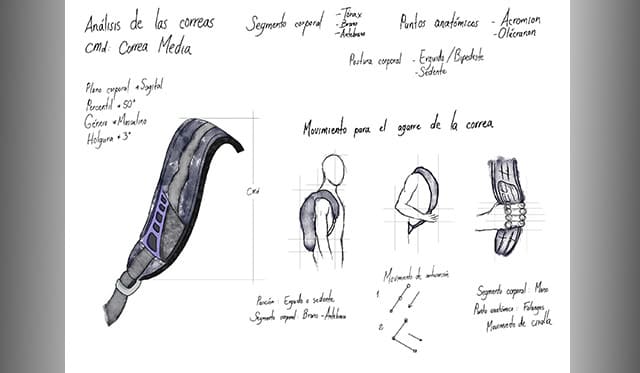 Análisis de las correas
cmd: Correa Media
Segmento corporal
- Tórax
- Brazo
- Antebrazo
Puntos anatómicos
- Acromion
- Olécranon
Postura corporal
- Erguido / Bipedeste
- Sedente
Plano corporal → Sagital
Percentil → 50°
Género → Masculino
Holgura → 3°
Movimiento para el agarre de la correa
Cmd
Posición: Erguido o sedente
Segmento corporal: Brazo - Antebrazo
Movimiento de
1
2
Segmento corporal: Mano
Punto anatómico: Falanges
Movimiento de